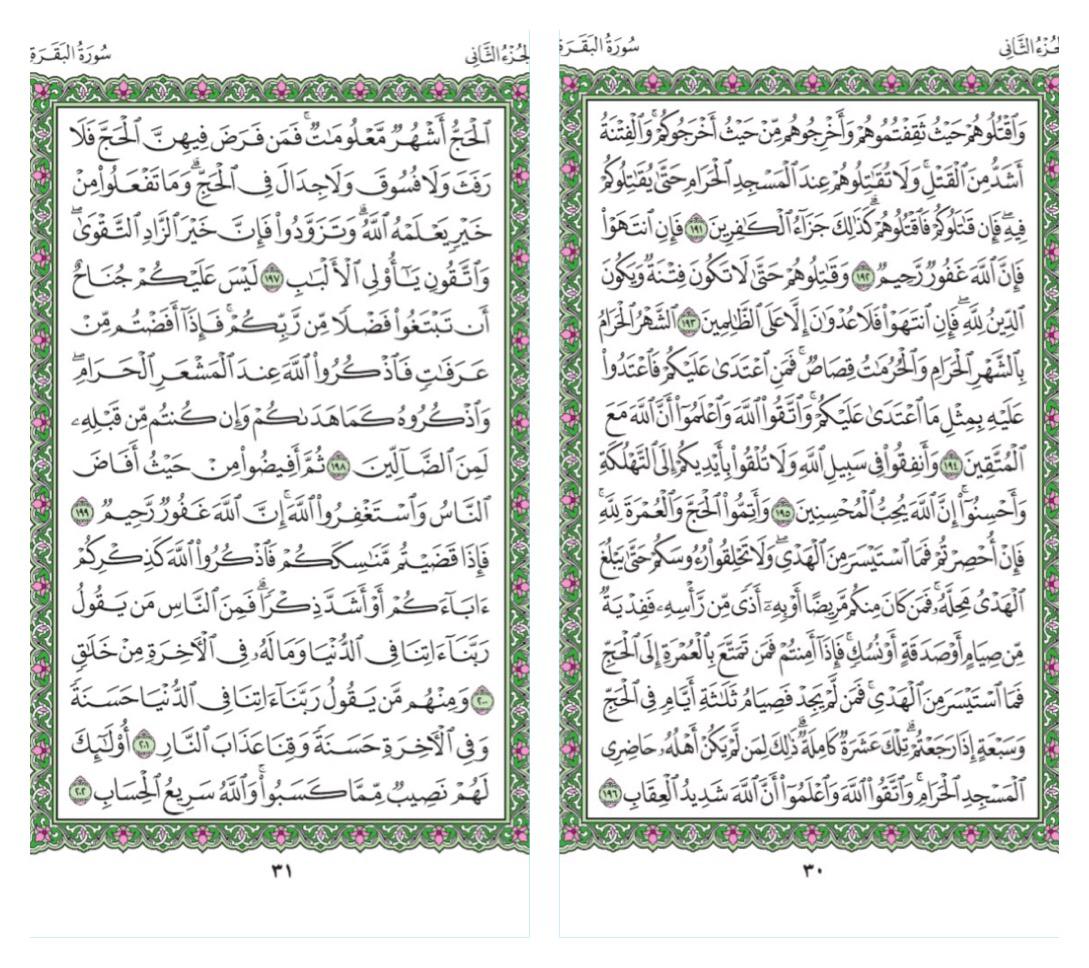 الجُزْءُ الثَّانِي
سُورَةُ البَقَرَةِ
وَٱقْتُلُوهُمْ حَيْثُ ثَقِفْتُمُوهُمْ وَأَخْرِجُوهُم مِّنْ حَيْثُ أَخْرَجُوكُمْ ۚ وَٱلْفِتْنَةُ
أَشَدُّ مِنَ ٱلْقَتْلِ ۚ وَلَا تُقَـٰتِلُوهُمْ عِندَ ٱلْمَسْجِدِ ٱلْحَرَامِ حَتَّىٰ يُقَـٰتِلُوكُمْ
فِيهِ ۖ فَإِن قَـٰتَلُوكُمْ فَٱقْتُلُوهُمْ ۗ كَذَٰلِكَ جَزَآءُ ٱلْكَـٰفِرِينَ ١٩١ فَإِنِ ٱنتَهَوْا۟
فَإِنَّ ٱللَّهَ غَفُورٌ رَّحِيمٌ ١٩٢ وَقَـٰتِلُوهُمْ حَتَّىٰ لَا تَكُونَ فِتْنَةٌ وَيَكُونَ
ٱلدِّينُ لِلَّهِ ۖ فَإِنِ ٱنتَهَوْا۟ فَلَا عُدْوَٰنَ إِلَّا عَلَى ٱلظَّـٰلِمِينَ ١٩٣ ٱلشَّهْرُ ٱلْحَرَامُ
بِٱلشَّهْرِ ٱلْحَرَامِ وَٱلْحُرُمَـٰتُ قِصَاصٌ ۚ فَمَنِ ٱعْتَدَىٰ عَلَيْكُمْ فَٱعْتَدُوا۟
عَلَيْهِ بِمِثْلِ مَا ٱعْتَدَىٰ عَلَيْكُمْ ۚ وَٱتَّقُوا۟ ٱللَّهَ وَٱعْلَمُوٓا۟ أَنَّ ٱللَّهَ مَعَ
ٱلْمُتَّقِينَ ١٩٤ وَأَنفِقُوا۟ فِى سَبِيلِ ٱللَّهِ وَلَا تُلْقُوا۟ بِأَيْدِيكُمْ إِلَى ٱلتَّهْلُكَةِ ۛ
وَأَحْسِنُوٓا۟ ۛ إِنَّ ٱللَّهَ يُحِبُّ ٱلْمُحْسِنِينَ ١٩٥ وَأَتِمُّوا۟ ٱلْحَجَّ وَٱلْعُمْرَةَ لِلَّهِ ۚ
فَإِنْ أُحْصِرْتُمْ فَمَا ٱسْتَيْسَرَ مِنَ ٱلْهَدْىِ ۖ وَلَا تَحْلِقُوا۟ رُءُوسَكُمْ حَتَّىٰ يَبْلُغَ
ٱلْهَدْىُ مَحِلَّهُۥ ۚ فَمَن كَانَ مِنكُم مَّرِيضًا أَوْ بِهِۦٓ أَذًى مِّن رَّأْسِهِۦ فَفِدْيَةٌ
مِّن صِيَامٍ أَوْ صَدَقَةٍ أَوْ نُسُكٍ ۚ فَإِذَآ أَمِنتُمْ فَمَن تَمَتَّعَ بِٱلْعُمْرَةِ إِلَى ٱلْحَجِّ
فَمَا ٱسْتَيْسَرَ مِنَ ٱلْهَدْىِ ۚ فَمَن لَّمْ يَجِدْ فَصِيَامُ ثَلَـٰثَةِ أَيَّامٍ فِى ٱلْحَجِّ
وَسَبْعَةٍ إِذَا رَجَعْتُمْ ۗ تِلْكَ عَشَرَةٌ كَامِلَةٌ ۗ ذَٰلِكَ لِمَن لَّمْ يَكُنْ أَهْلُهُۥ حَاضِرِى
ٱلْمَسْجِدِ ٱلْحَرَامِ ۚ وَٱتَّقُوا۟ ٱللَّهَ وَٱعْلَمُوٓا۟ أَنَّ ٱللَّهَ شَدِيدُ ٱلْعِقَابِ ١٩٦
٣٠
الجُزْءُ الثَّانِي
سُورَةُ البَقَرَةِ
ٱلْحَجُّ أَشْهُرٌ مَّعْلُومَـٰتٌ ۚ فَمَن فَرَضَ فِيهِنَّ ٱلْحَجَّ فَلَا
رَفَثَ وَلَا فُسُوقَ وَلَا جِدَالَ فِى ٱلْحَجِّ ۗ وَمَا تَفْعَلُوا۟ مِنْ
خَيْرٍ يَعْلَمْهُ ٱللَّهُ ۗ وَتَزَوَّدُوا۟ فَإِنَّ خَيْرَ ٱلزَّادِ ٱلتَّقْوَىٰ ۚ
وَٱتَّقُونِ يَـٰٓأُو۟لِى ٱلْأَلْبَـٰبِ ١٩٧ لَيْسَ عَلَيْكُمْ جُنَاحٌ
أَن تَبْتَغُوا۟ فَضْلًا مِّن رَّبِّكُمْ ۚ فَإِذَآ أَفَضْتُم مِّنْ
عَرَفَـٰتٍ فَٱذْكُرُوا۟ ٱللَّهَ عِندَ ٱلْمَشْعَرِ ٱلْحَرَامِ ۖ
وَٱذْكُرُوهُ كَمَا هَدَىٰكُمْ وَإِن كُنتُم مِّن قَبْلِهِۦ
لَمِنَ ٱلضَّآلِّينَ ١٩٨ ثُمَّ أَفِيضُوا۟ مِنْ حَيْثُ أَفَاضَ
ٱلنَّاسُ وَٱسْتَغْفِرُوا۟ ٱللَّهَ ۚ إِنَّ ٱللَّهَ غَفُورٌ رَّحِيمٌ ١٩٩
فَإِذَا قَضَيْتُم مَّنَـٰسِكَكُمْ فَٱذْكُرُوا۟ ٱللَّهَ كَذِكْرِكُمْ
ءَابَآءَكُمْ أَوْ أَشَدَّ ذِكْرًا ۗ فَمِنَ ٱلنَّاسِ مَن يَقُولُ
رَبَّنَآ ءَاتِنَا فِى ٱلدُّنْيَا وَمَا لَهُۥ فِى ٱلْـَٔاخِرَةِ مِنْ خَلَـٰقٍ
٢٠٠ وَمِنْهُم مَّن يَقُولُ رَبَّنَآ ءَاتِنَا فِى ٱلدُّنْيَا حَسَنَةً
وَفِى ٱلْـَٔاخِرَةِ حَسَنَةً وَقِنَا عَذَابَ ٱلنَّارِ ٢٠١ أُو۟لَـٰٓئِكَ
لَهُمْ نَصِيبٌ مِّمَّا كَسَبُوا۟ ۚ وَٱللَّهُ سَرِيعُ ٱلْحِسَابِ ٢٠٢
٣١